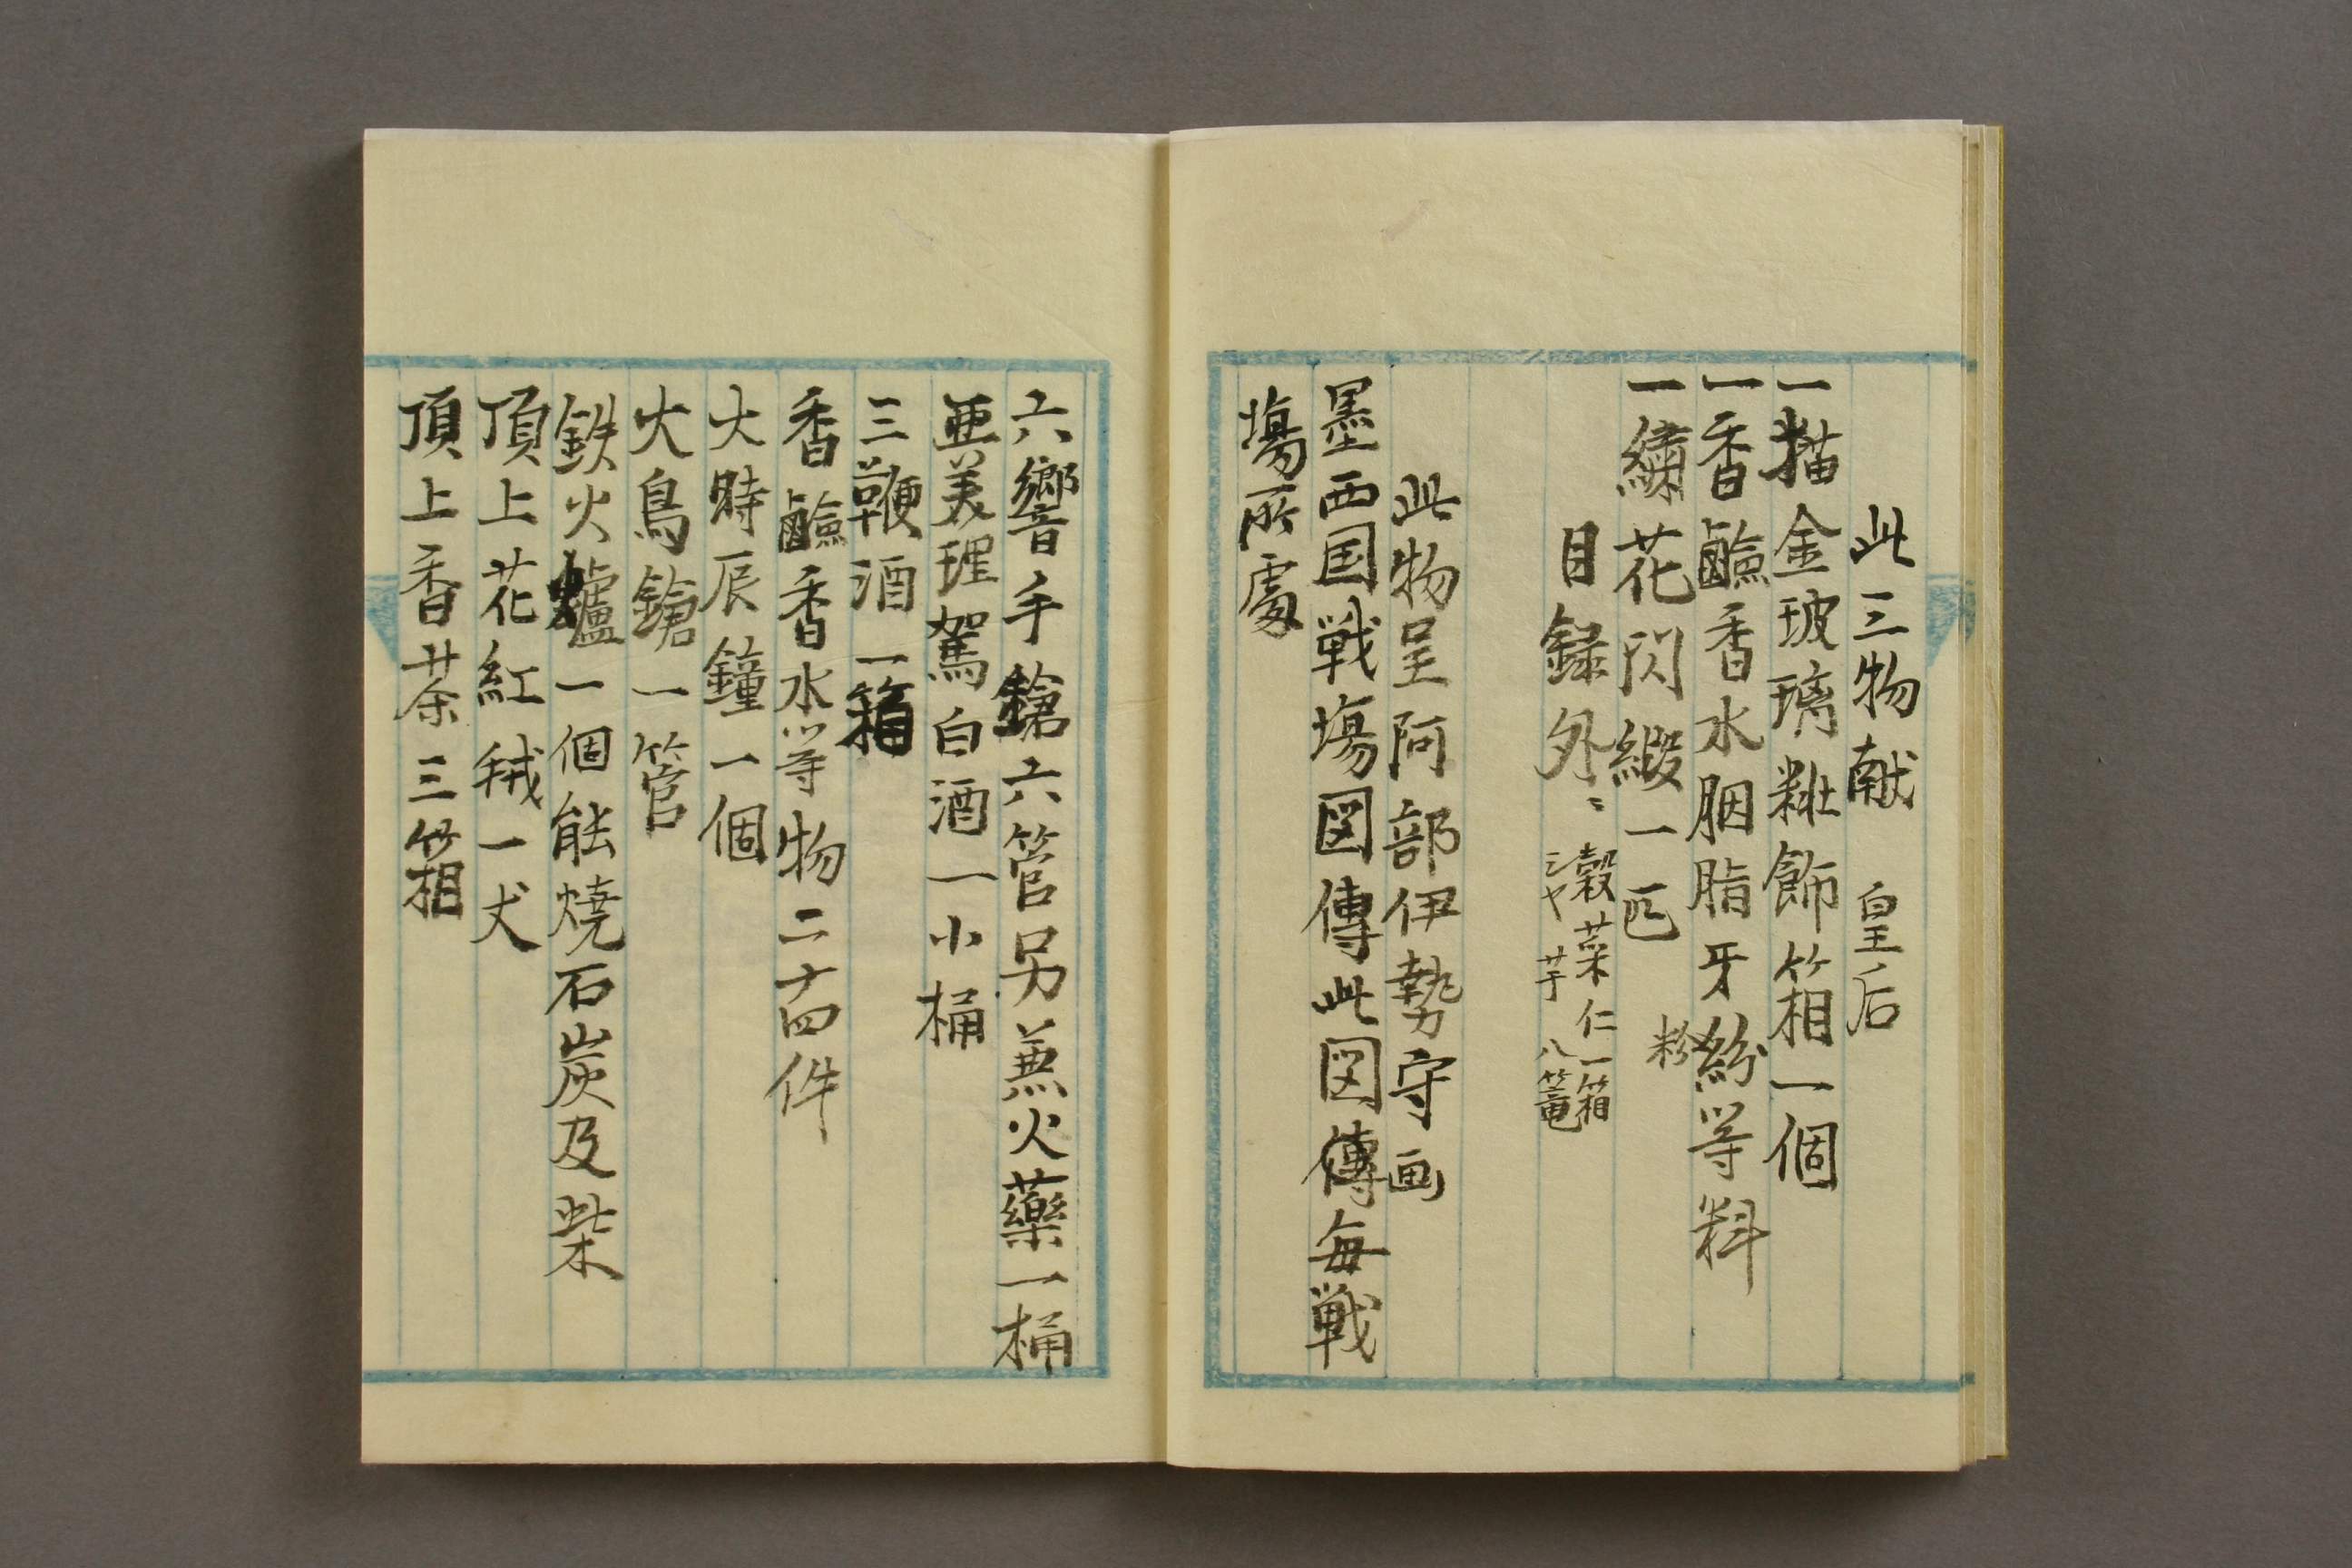 此三物献　皇后
一描金玻璃粧飾箱一個
一香鹼香水胭脂牙紛等料
粉
一繍花閃緞一匹
目録外ニ
穀菜仁一箱
シヤ芋八篭
此物呈阿部伊勢守画
墨西国戦塲図傳此図傳毎戦
塲所處
六響手鎗六管另蕪火藥一桶
亜美理駕白酒一小桶
三鞭酒一箱
香鹼香水等物二十四件
大時辰鐘一個
火鳥鎗一管
鉄火爐一個能燒石炭及柴
頂上花紅絨一丈
頂上香茶三箱